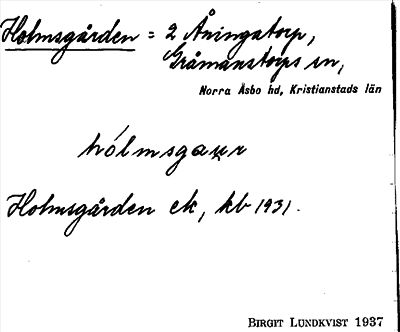 Holmsgården = 2 Åningstorp,
Gråmanstorps sn,
Norra Åsbo hd, Kristianstads län
hólmsgaʀn
Holmsgården ek, kb 1931.
BIRGIT LUNDKVIST 1937